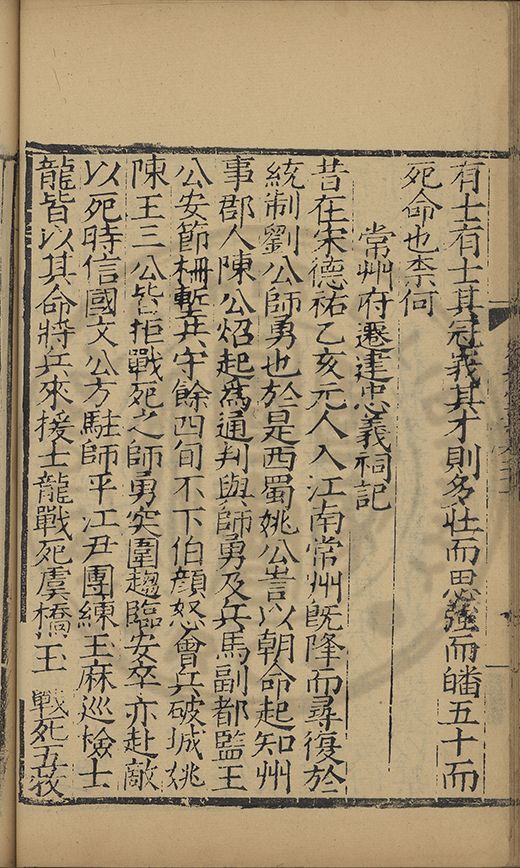 有士有士其冠義其才則多壯而思強而皤五十而
死命也柰何
常州府遷建忠義祠記
昔在宋德祐乙亥元人入江南常州旣降而尋復於
統制劉公師勇也於是西蜀姚公訔以朝命起知州
事郡人陳公炤起爲通判與師勇及兵馬副都監王
公安節柵塹共守餘四旬不下伯顔怒會兵破城姚
陳王三公皆拒戰死之師勇突圍趨臨安卒亦赴敵
以死時信國文公方駐師平江尹團練玉麻巡檢士
龍皆以其命將兵來援士龍戰死虞橋玉 戰死五牧